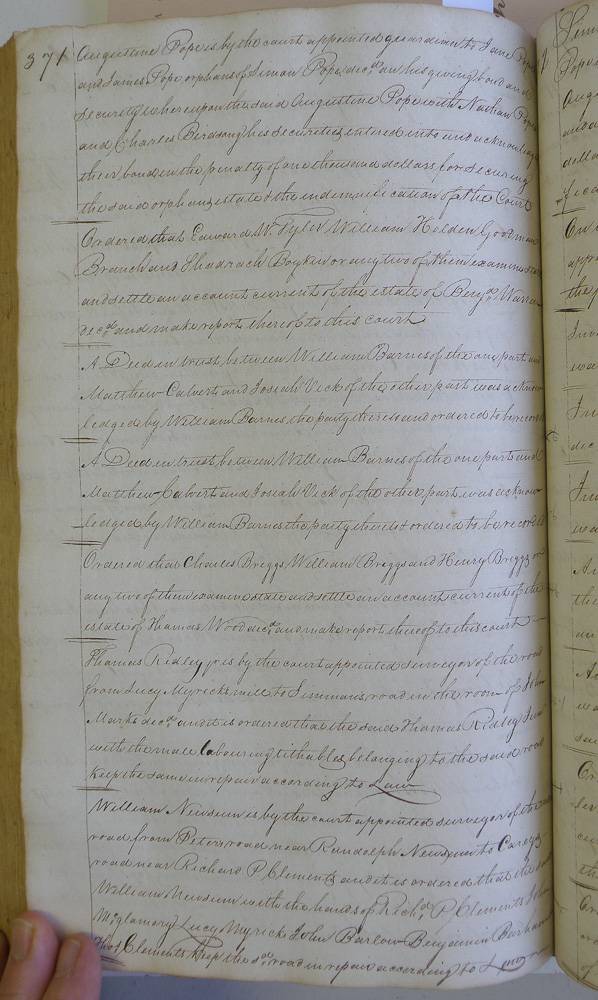 371
Augustine Pope is by the court appointed guardian to Jane Pope
and James Pope orphans of Simon Pope decd. on his giving bond and
security whereupon the said Augustine Pope with Nathan Pope
and Charles Birdsong his securities entered into and acknowledged
their bond in the penalty of one thousand dollars for securing
the said orphans estate & the indemnification of the Court
Ordered that Edward W. Tyler William Holden Goodman
Branch and Shadrach Boykin or any two of them examine state
and settle an account current of the estate of Benja. Warren
decd. and make report thereof to this court
A Deed in trust between William Barnes of the one part and
Matthew Calvert and Josiah Vick of the other part was acknow
ledged by William Barnes the party thereto and ordered to be recorded
A Deed in trust between William Barnes of the one part and
Matthew Calvert and Josiah Vick of the other part was acknow-
ledged by William Barnes the party thereto & ordered to be recorded
Ordered that Charles Briggs William Briggs and Henry Briggs or
any two of them examine state and settle an account current of the
estate of Thomas Wood decd. and make report thereof to this court
Thomas Ridley jr is by the court appointed surveyor of the road
from Lucy Myricks mill to Simmons road in the room of
Marks decd. and it is ordered that the said Thomas Ridley
with the male labouring tithables belonging to the said road
keep the same in repair according to Law
William Newsum is by the court appointed surveyor of the
road from Peters road near Randolph Newsum to Careys
road near Richard P. Clements and it is ordered that the said
William Newsum with the hands of Richd. P. Clements John
McGlamory Lucy Myrick John Barlow Benjamin Barham
Thos. Clements keep the sd. road in repair according to Law